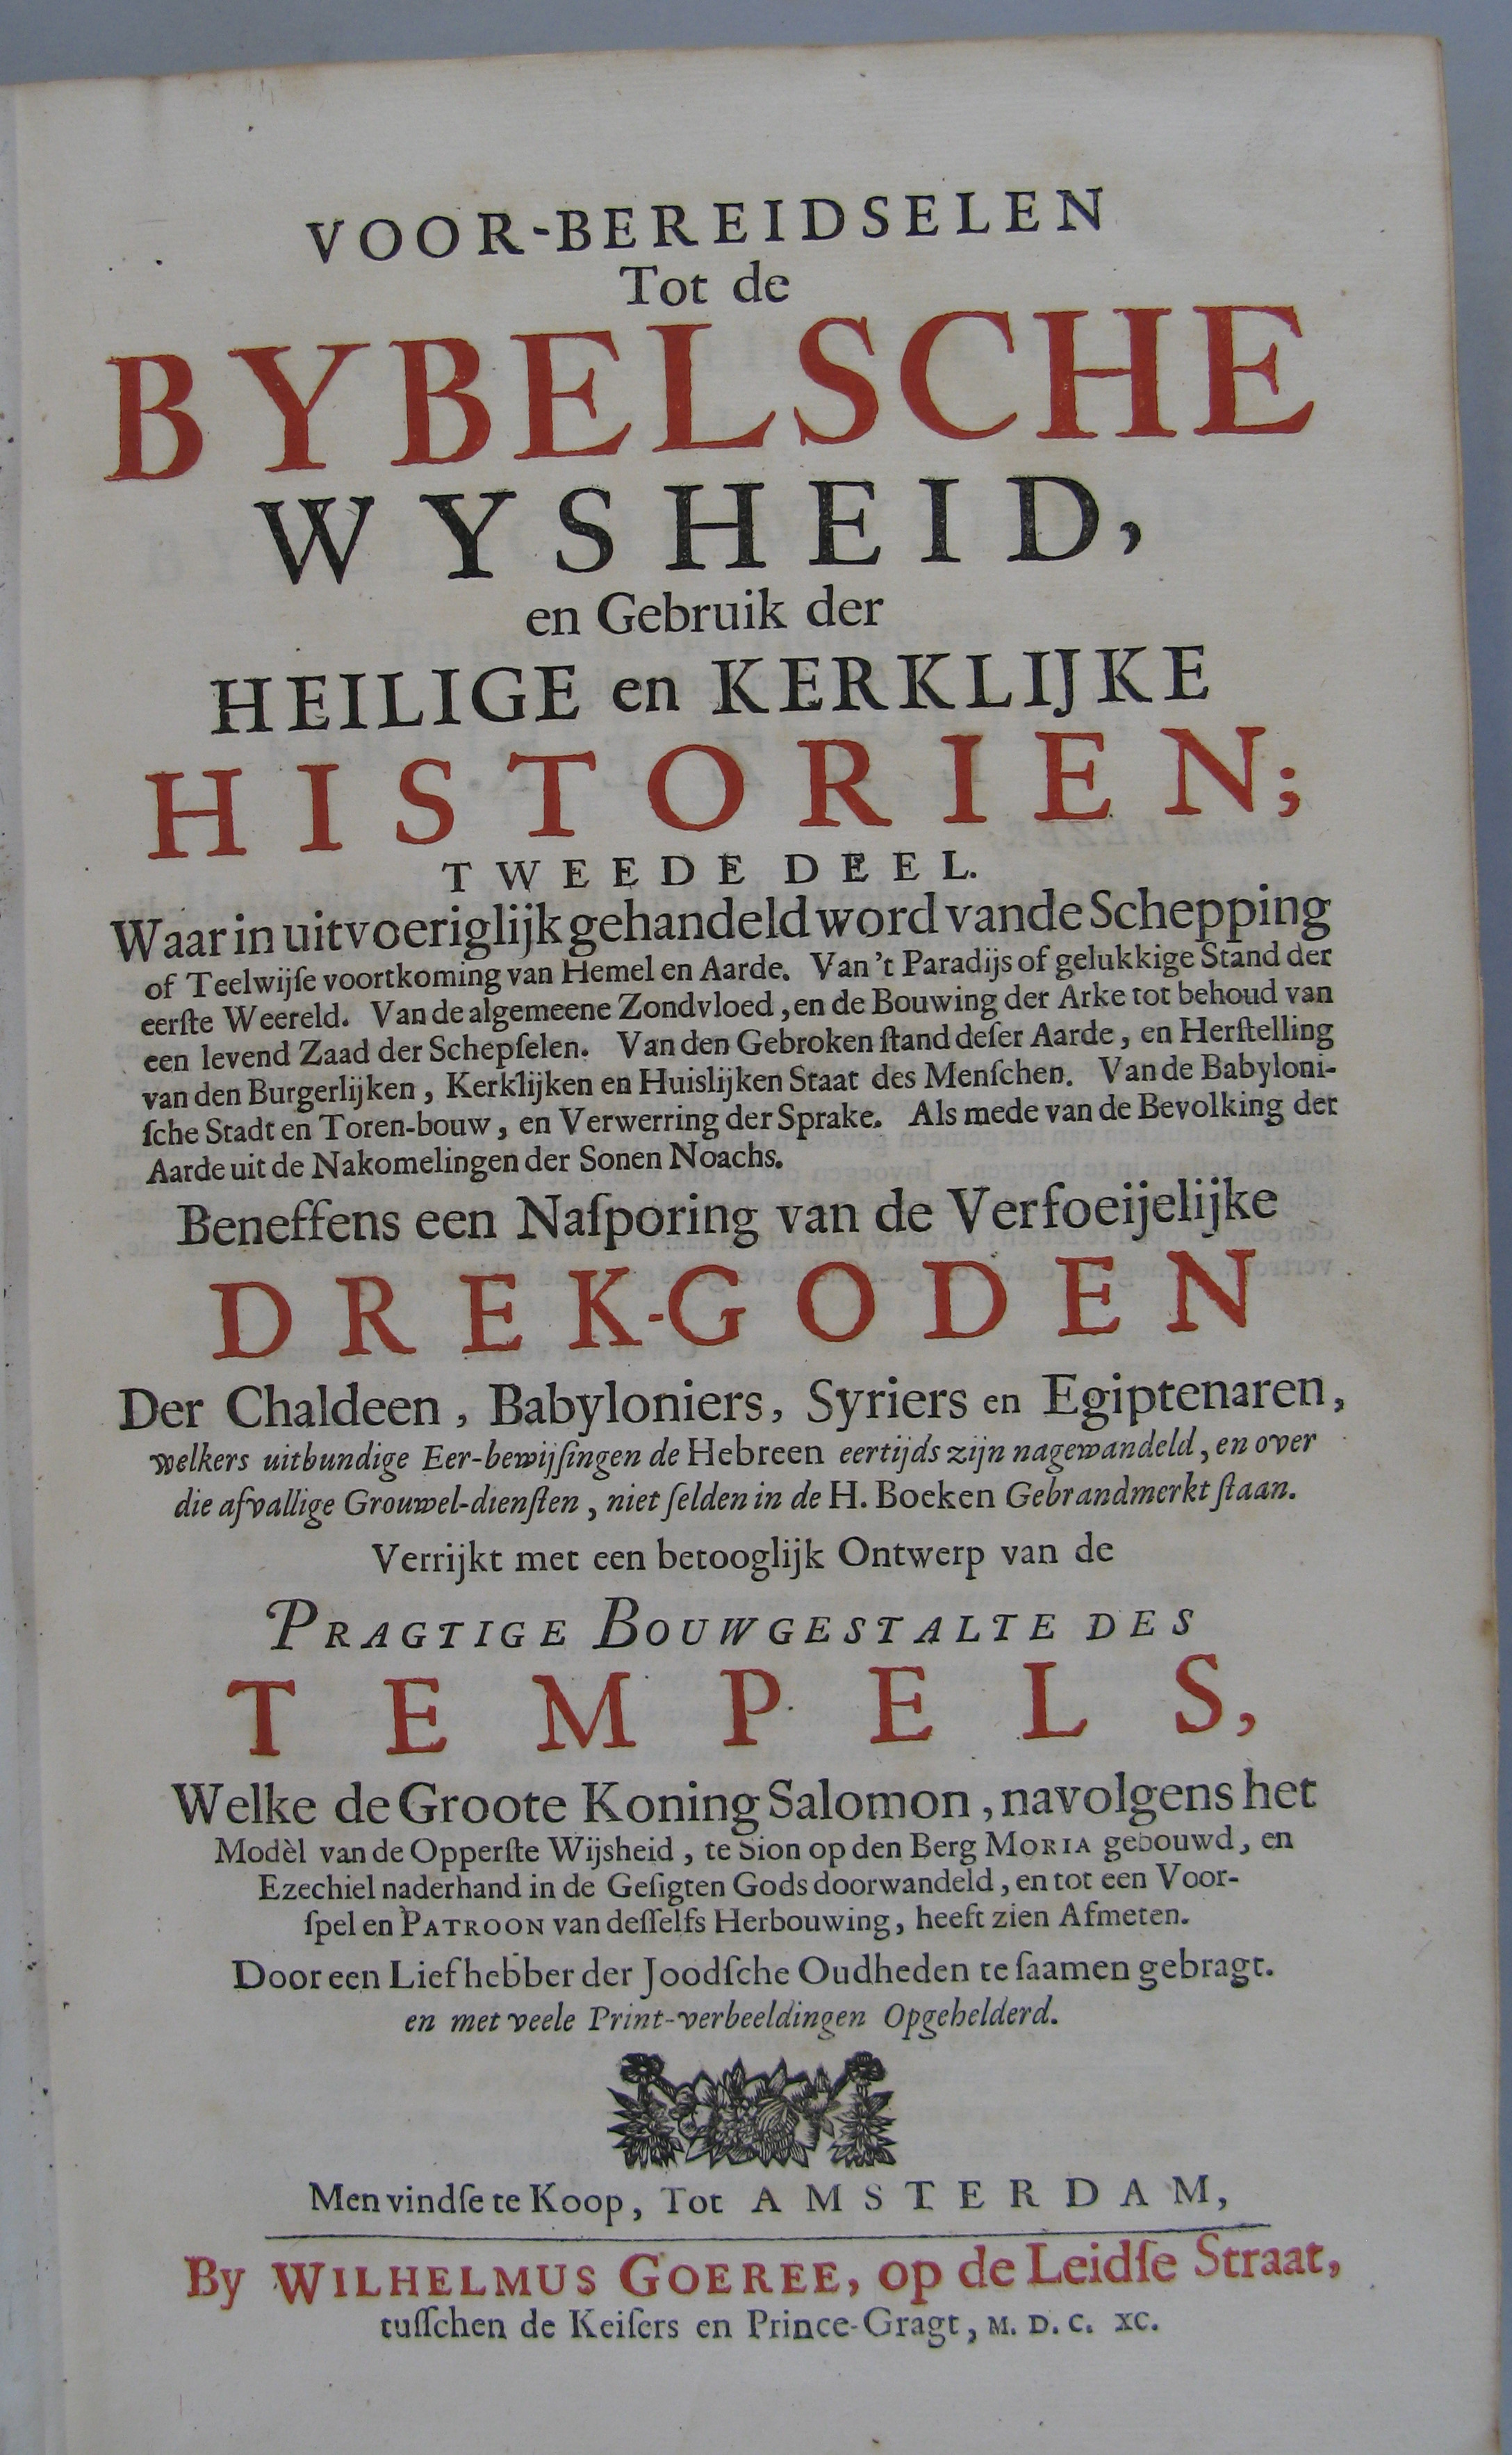 VOOR-BEREIDSELEN
Tot de
BYBELSCHE
WYSHEID,
en Gebruik der
HEILIGE en KERKLIJKE
HISTORIEN;
TWEEDE DEEL.
Waar in uitvoeriglijk gehandeld word vande Schepping
of Teelwijſe voortkoming van Hemel en Aarde. Van 't Paradijs of gelukkige Stand der
eerſte Weereld. Van de algemeene Zondvloed, en de Bouwing der Arke tot behoud van
een levend Zaad der Schepſelen. Van den Gebroken ſtand deſer Aarde, en Herſtelling
van den Burgerlijken, Kerklijken en Huislijken Staat des Menſchen. Van de Babyloni-
ſche Stadt en Toren-bouw, en Verwerring der Sprake. Als mede van de Bevolking der
Aarde uit de Nakomelingen der Sonen Noachs.
Beneffens een Naſporing van de Verfoeijelijke
DREK-GODEN
Der Chaldeen, Babyloniers, Syriers en Egiptenaren,
welkers uitbundige Eer-bewijſingen de Hebreen eertijds zijn nagewandeld, en over
die afvallige Grouwel-dienſten, niet ſelden in de H. Boeken Gebrandmerkt ſtaan.
Verrijkt met een betooglijk Ontwerp van de
PRAGTIGE BOUWGESTALTE DES
TEMPELS,
Welke de Groote Koning Salomon, navolgens het
Modèl van de Opperſte Wijsheid, te Sion op den Berg MORIA gebouwd, en
Ezechiel naderhand in de Geſigten Gods doorwandeld, en tot een Voor-
ſpel en PATROON van deſſelfs Herbouwing, heeft zien Afmeten.
Door een Liefhebber der Joodſche Oudheden te ſaamen gebragt.
en met veele Print-verbeeldingen Opgehelderd.
Men vindſe te Koop, Tot AMSTERDAM,
By WILHELMUS GOEREE, op de Leidſe Straat,
tuſſchen de Keiſers en Prince-Gragt, M. D. C. XC.